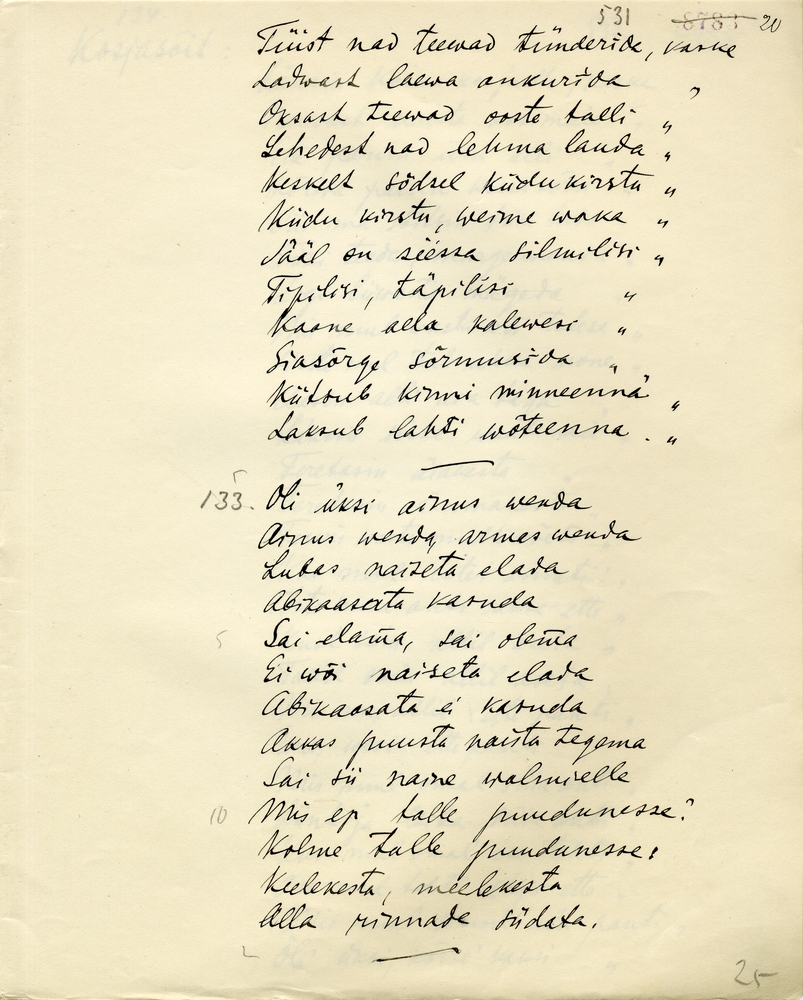 531 8783 20
Tüüst nad teewad tünderida, kaske
Ladwast laewa ankurida "
Oksast teewad ooste talli "
Lehedest nad lehma lauda "
Keskelt södsel küdu kirstu "
Küdu kirstu, weime waka "
Sääl on seessa silmilisi "
Tipilisi, täpilisi "
Kaane alla kalewesi "
Siasõrge sõrmusida "
Kütsub kinni minneenna "
Laksub lahti wõteenna. "
133. Oli üksi ainus wenda
Ainus wenda, armes wenda
Lubas naiseta elada
Abikaaseta kasuda
5 Sai elama, sai olema
Ei wõi naiseta elada
Abikaasata ei kasuda
Akkas puusta naista tegema
Sai sii naine walmielle
10 Mis ep talle puudunesse?
Kolme talle puudunesse:
Keelekesta, meelekesta
Alla rinnade südata.
25